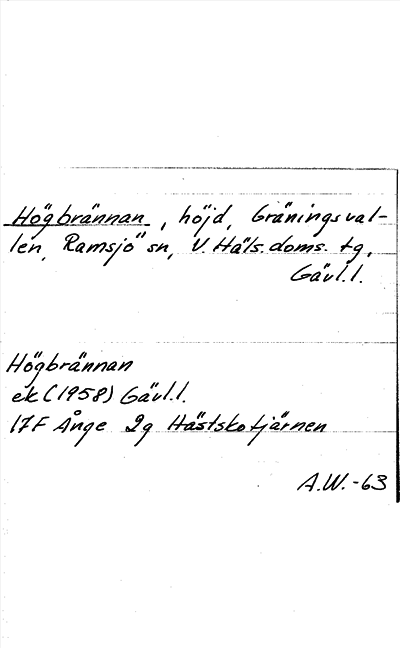 Högbrännan, höjd, Gräningsval-
len, Ramsjö sn, V. Häls. doms. tg,
Gävl.l.
Högbrännan
ek (1958) Gävl.l.
17F Ånge 2g Hästskotjärnen
A.W.-63